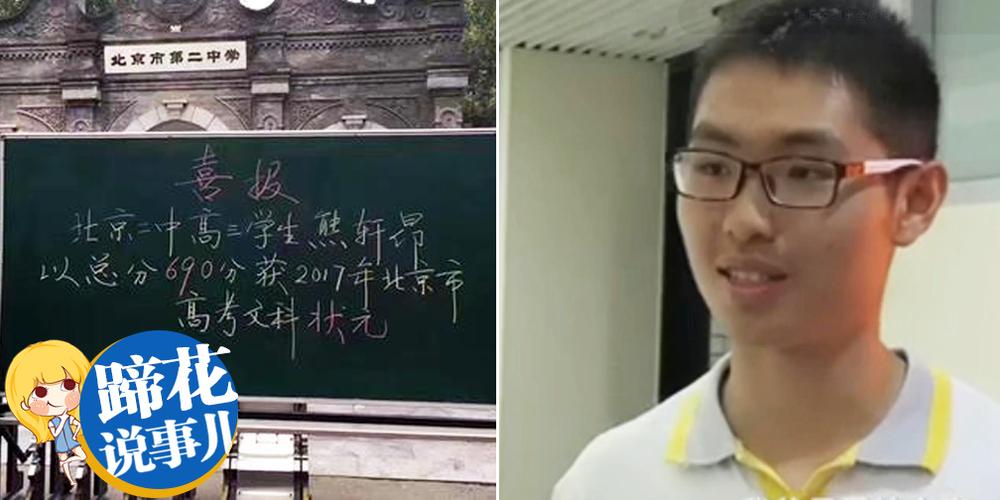 北京市第二中学
喜报
北京二中高三学生熊轩昂
以总分690分获2017年北京市
高考文科状元
蹄花
说事儿